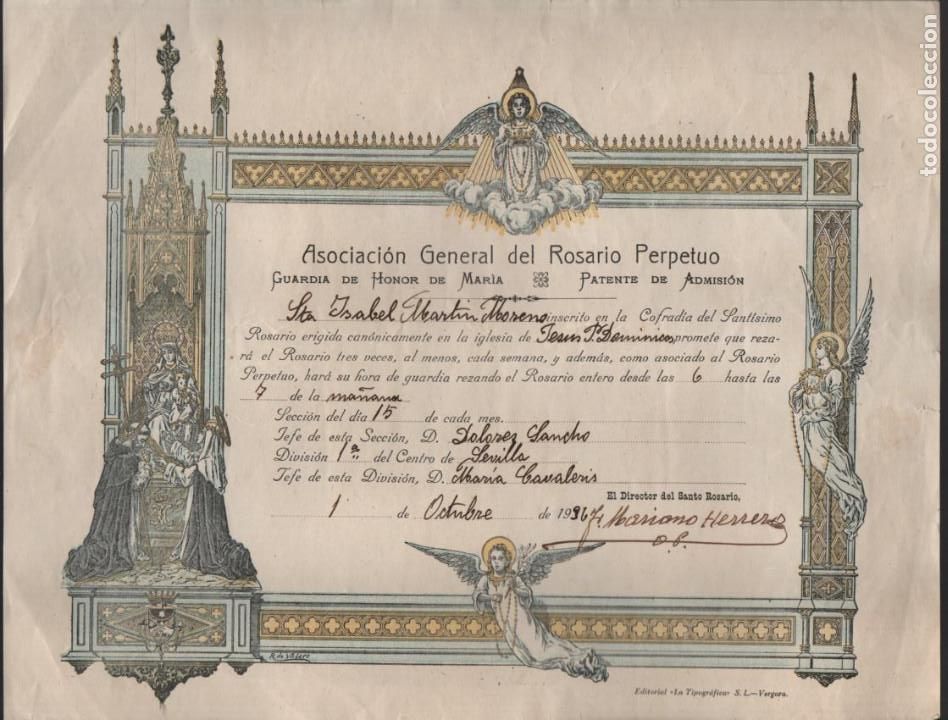 Asociación General del Rosario Perpetuo
Guardia de Honor de María Patente de Admisión
Sta Isabel Martin Moreno inscrito en la Cofradía del Santísimo
Rosario erigida canónicamente en la iglesia de Jesus P. Dominicos promete que reza-
rá el Rosario tres veces, al menos, cada semana, y además, como asociado al Rosario
Perpetuo, hará su hora de guardia rezando el Rosario entero desde las 6 hasta las
7 de la mañana
Sección del día 15 de cada mes.
Jefe de esta Sección, D. Dolores Sancho
División 1ª del Centro de Sevilla
Jefe de esta División, D. María Cavaleris
El Director del Santo Rosario,
1 de Octubre de 1936 Fr Mariano Herrero
O.P.
Editorial «La Tipográfica» S. L.—Vergara.
todocoleccion